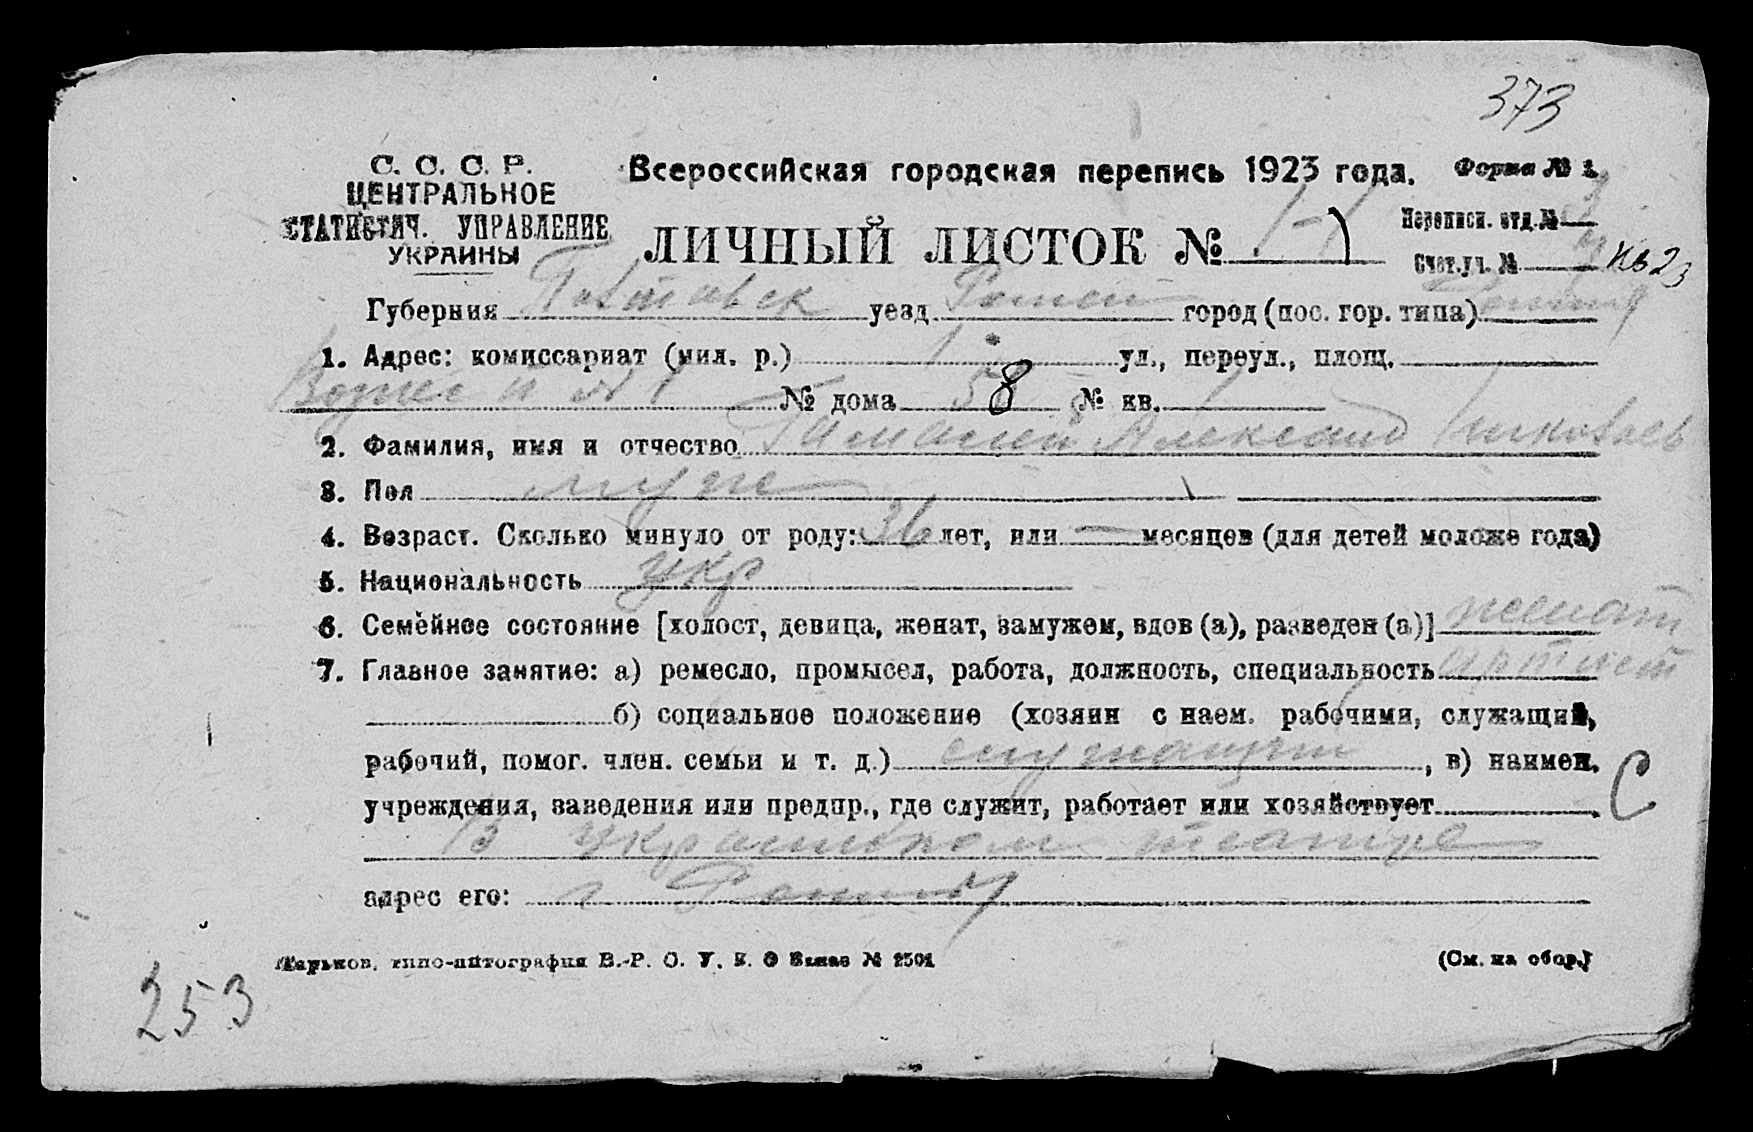 373
С. С. С. Р.
ЦЕНТРАЛЬНОЕ
СТАТИСТИЧ. УПРАВЛЕНИЕ
УКРАИНЫ
Всероссийская городская перепись 1923 года.
Форма № 1.
ЛИЧНЫЙ ЛИСТОК № 1-1
Переписн. отд. № 3
Счет. уч. №
Губерния Полтавск уезд Ромен город (пос. гор. типа) Ромны
1. Адрес: комиссариат (мил. р.) 1 ул., переул., площ.
№ дома 8 № кв. 1
2. Фамилия, имя и отчество Гамалей Александ Николаев
3. Пол муж
4. Возраст. Сколько минуло от роду: 36 лет, или — месяцев (для детей моложе года)
5. Национальность укр
6. Семейное состояние [холост, девица, женат, замужем, вдов (а), разведен (а)] женат
7. Главное занятие: а) ремесло, промысел, работа, должность, специальность артист
б) социальное положение (хозяин с наем. рабочими, служащий,
рабочий, помог. член. семьи и т. д.) служащий, в) наимен.
учреждения, заведения или предпр., где служит, работает или хозяйствует
С
В украинском театре
адрес его: г Ромны
Харьков, типо-литография В.-Р. О. У. В. О Заказ № 2501
(См. на обор.)
253